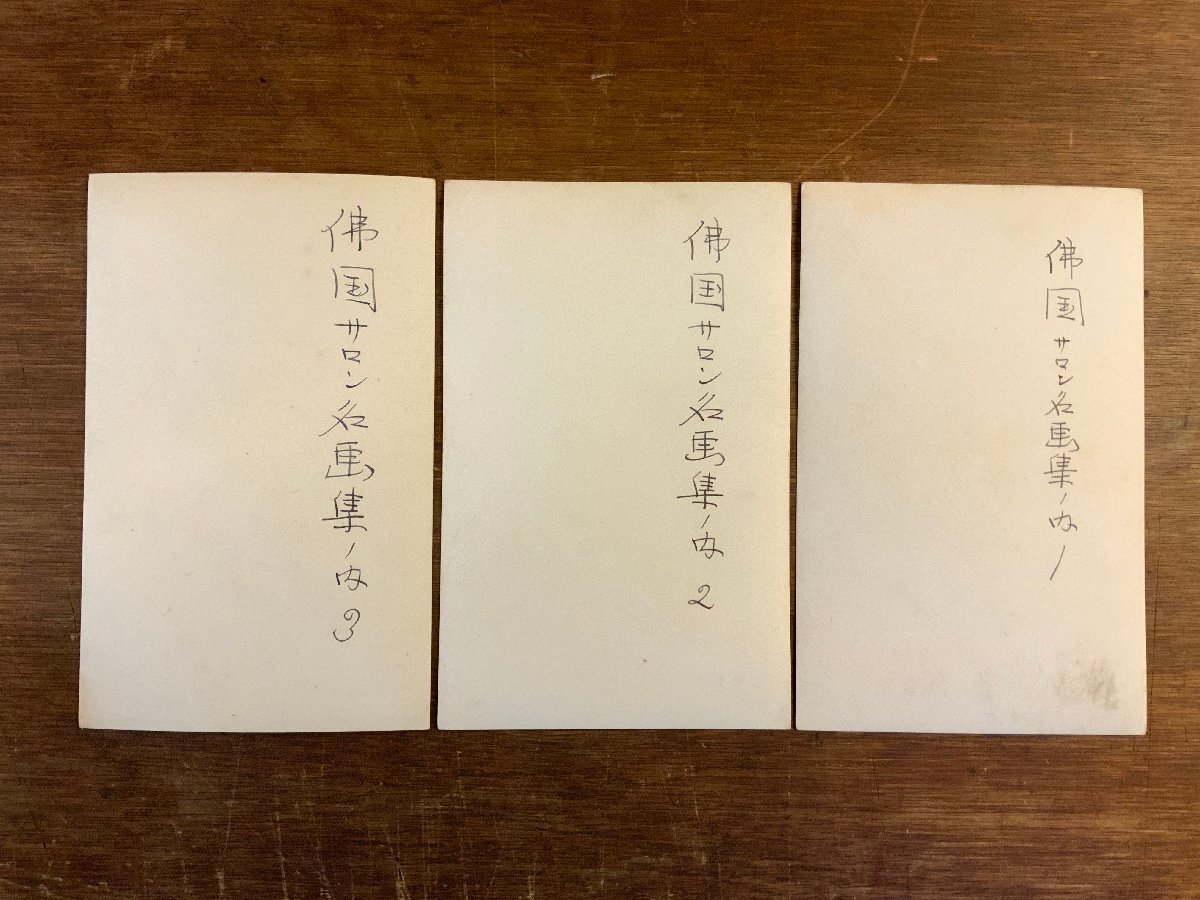 佛国サロン名画集ノ内1
佛国サロン名画集ノ内2
佛国サロン名画集ノ内3